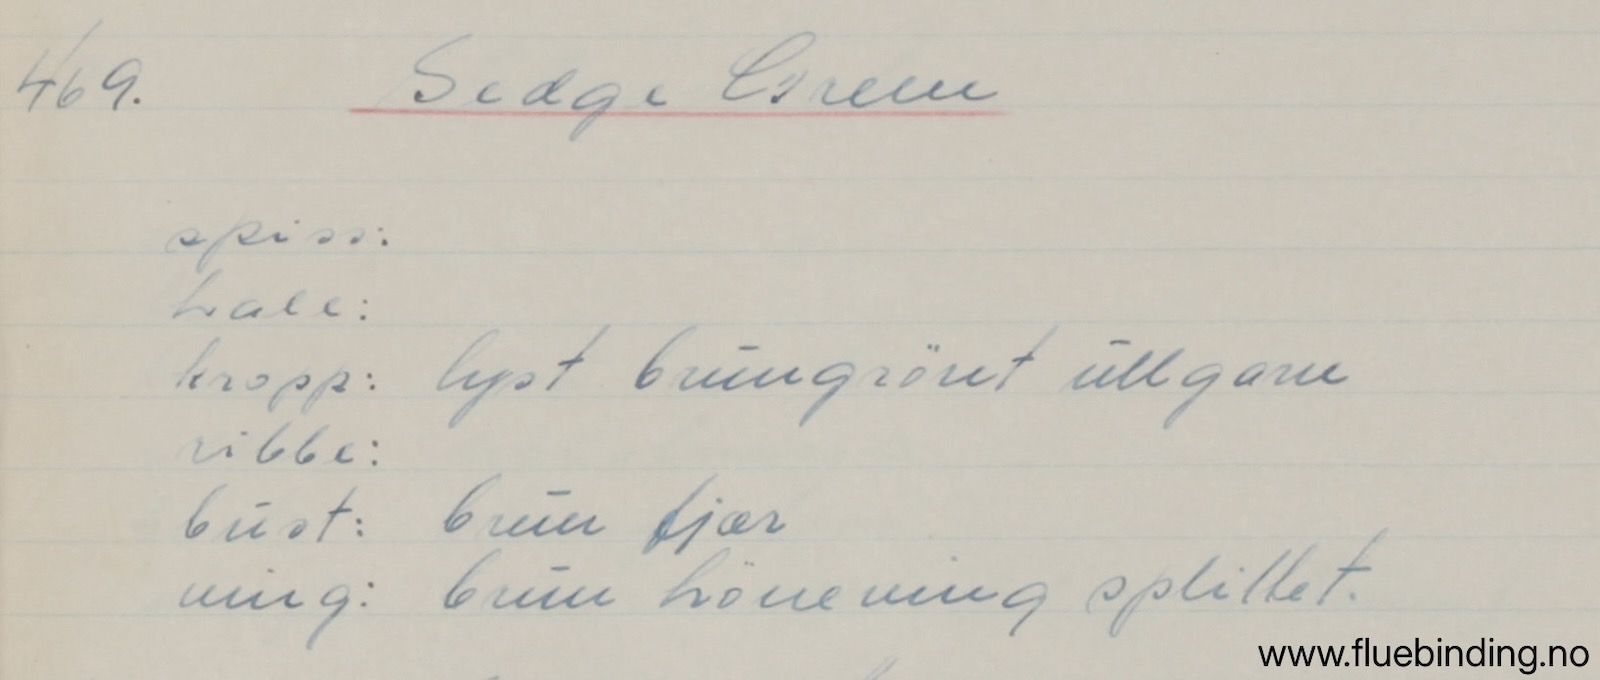 469. Sedge Brown
spiss:
hale:
kropp: lyst brungrönt ullgarn
ribbe:
bust: brun fjær
ving: brun höneving splittet.
www.fluebinding.no